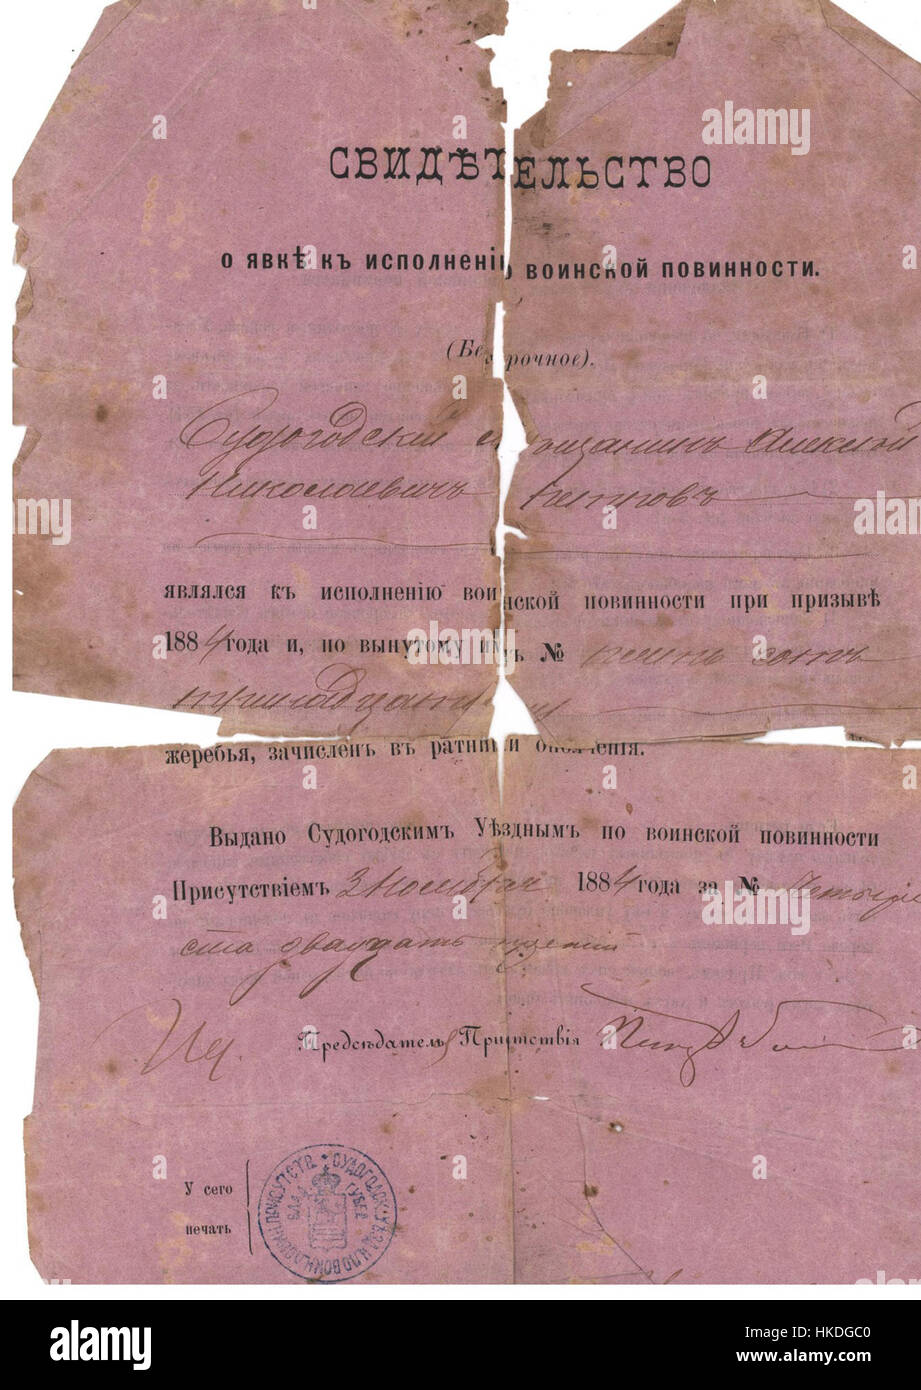 СВИДѢТЕЛЬСТВО
О ЯВКѢ КЪ ИСПОЛНЕНІЮ ВОИНСКОЙ ПОВИННОСТИ.
(Безсрочное).
Судогодскій мѣщанинъ Алексѣй
Николаевичъ Петровъ
являлся къ исполненію воинской повинности при призывѣ
1884 года и, по вынутому имъ №
жеребья, зачисленъ въ ратники ополченія.
Выдано Судогодскимъ Уѣзднымъ по воинской повинности
Присутствіемъ 3 Ноября 1884 года за № Четыре
ста двадцать
Предсѣдатель Присутствія
У сего
печать
alamy
Image ID: HKDGC0
www.alamy.com